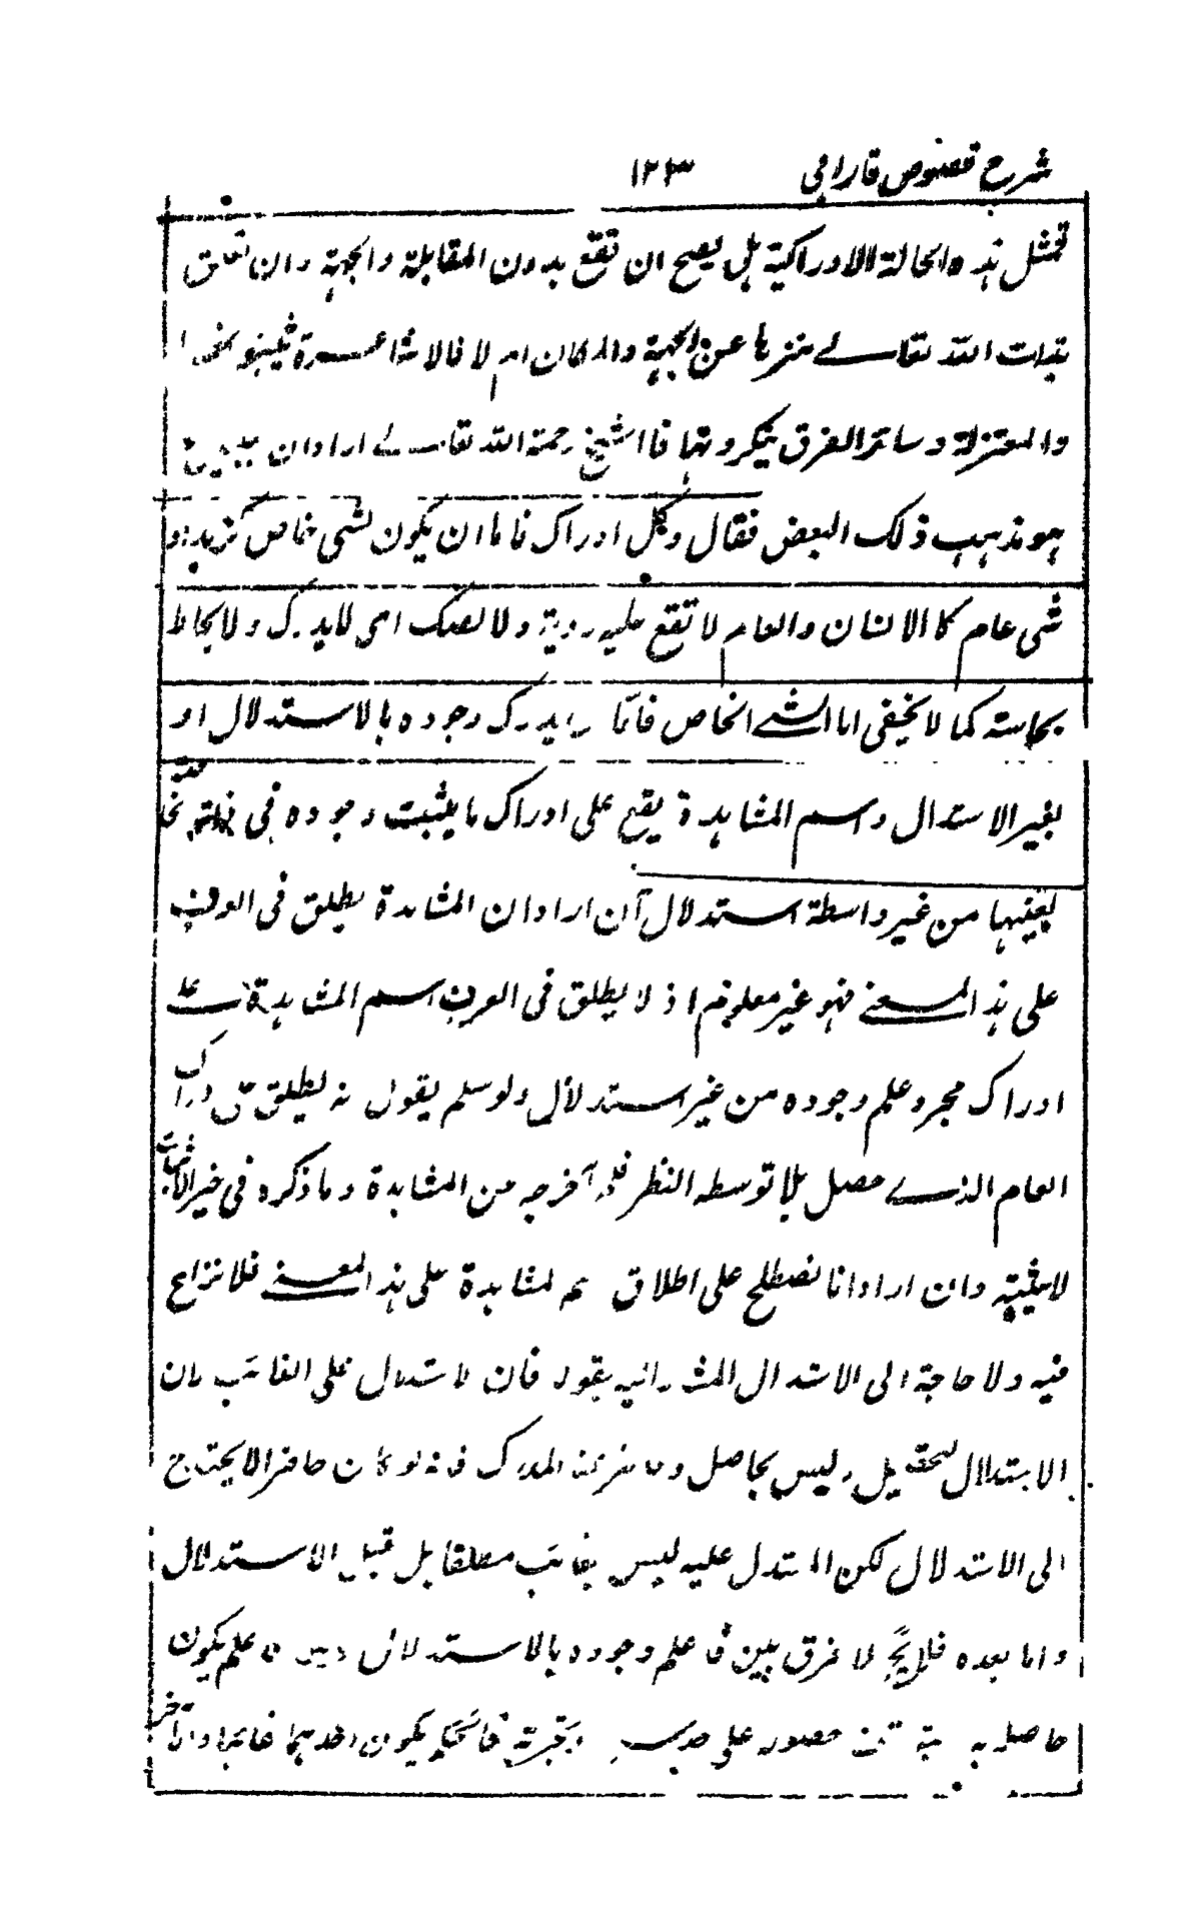 شرح فصوص فارابي ١٢٣
تمثل هذه الحالة الادراكية بل يصح ان تقع بدون المقابلة والجهة وان تعلق
بذات الله تعالى منزها عن الجهة والمكان ام لا فالاشاعرة يثبتونها
والمعتزلة وسائر الفرق ينكرونها فالشيخ رحمة الله تعالى اراد ان
هو مذهب ذلك البعض فقال وكل ادراك فاما ان يكون لشي خاص كزيد او
شي عام كالانسان والعام لا تقع عليه روية ولا لصك اى لا يدرك ولا يحاط
بحاسته كما لا يخفى اما الشي الخاص فاما ان يدرك وجوده بالاستدلال او
بغير الاستدلال واسم المشاهدة يقع على ادراك ما يثبت وجوده في ذاته الخاصة
بعينها من غير واسطة استدلال آن اراد ان المشاهدة يطلق في العرف
على هذا المعنى فهو غير معلوم اذ لا يطلق في العرف اسم المشاهدة على
ادراك مجرد علم وجوده من غير استدلال ولو سلم يقول انه يطلق على ادراك
العام الذى حصل بلا توسطه النظر فلم آخرجه من المشاهدة وما ذكره في خير الاثبات
لا يثبته وان اراد انا نصطلح على اطلاق اسم المشاهدة على هذا المعنى فلا نزاع
فيه ولا حاجة الى الاستدلال المشار اليه بقوله فان الاستدلال على الغائب لان
الاستدلال لتحصيل ما ليس بحاصل والحاضر عند المدرك فانه لو كان حاضرا لا يحتاج
الى الاستدلال لكن المستدل عليه ليس بغائب مطلقا بل قبل الاستدلال
واما بعده فلا يجز لا فرق بين ما علم وجوده بالاستدلال وبين ما علم يكون
حاصله فالحكم يكون احدهما غائبا والآخر